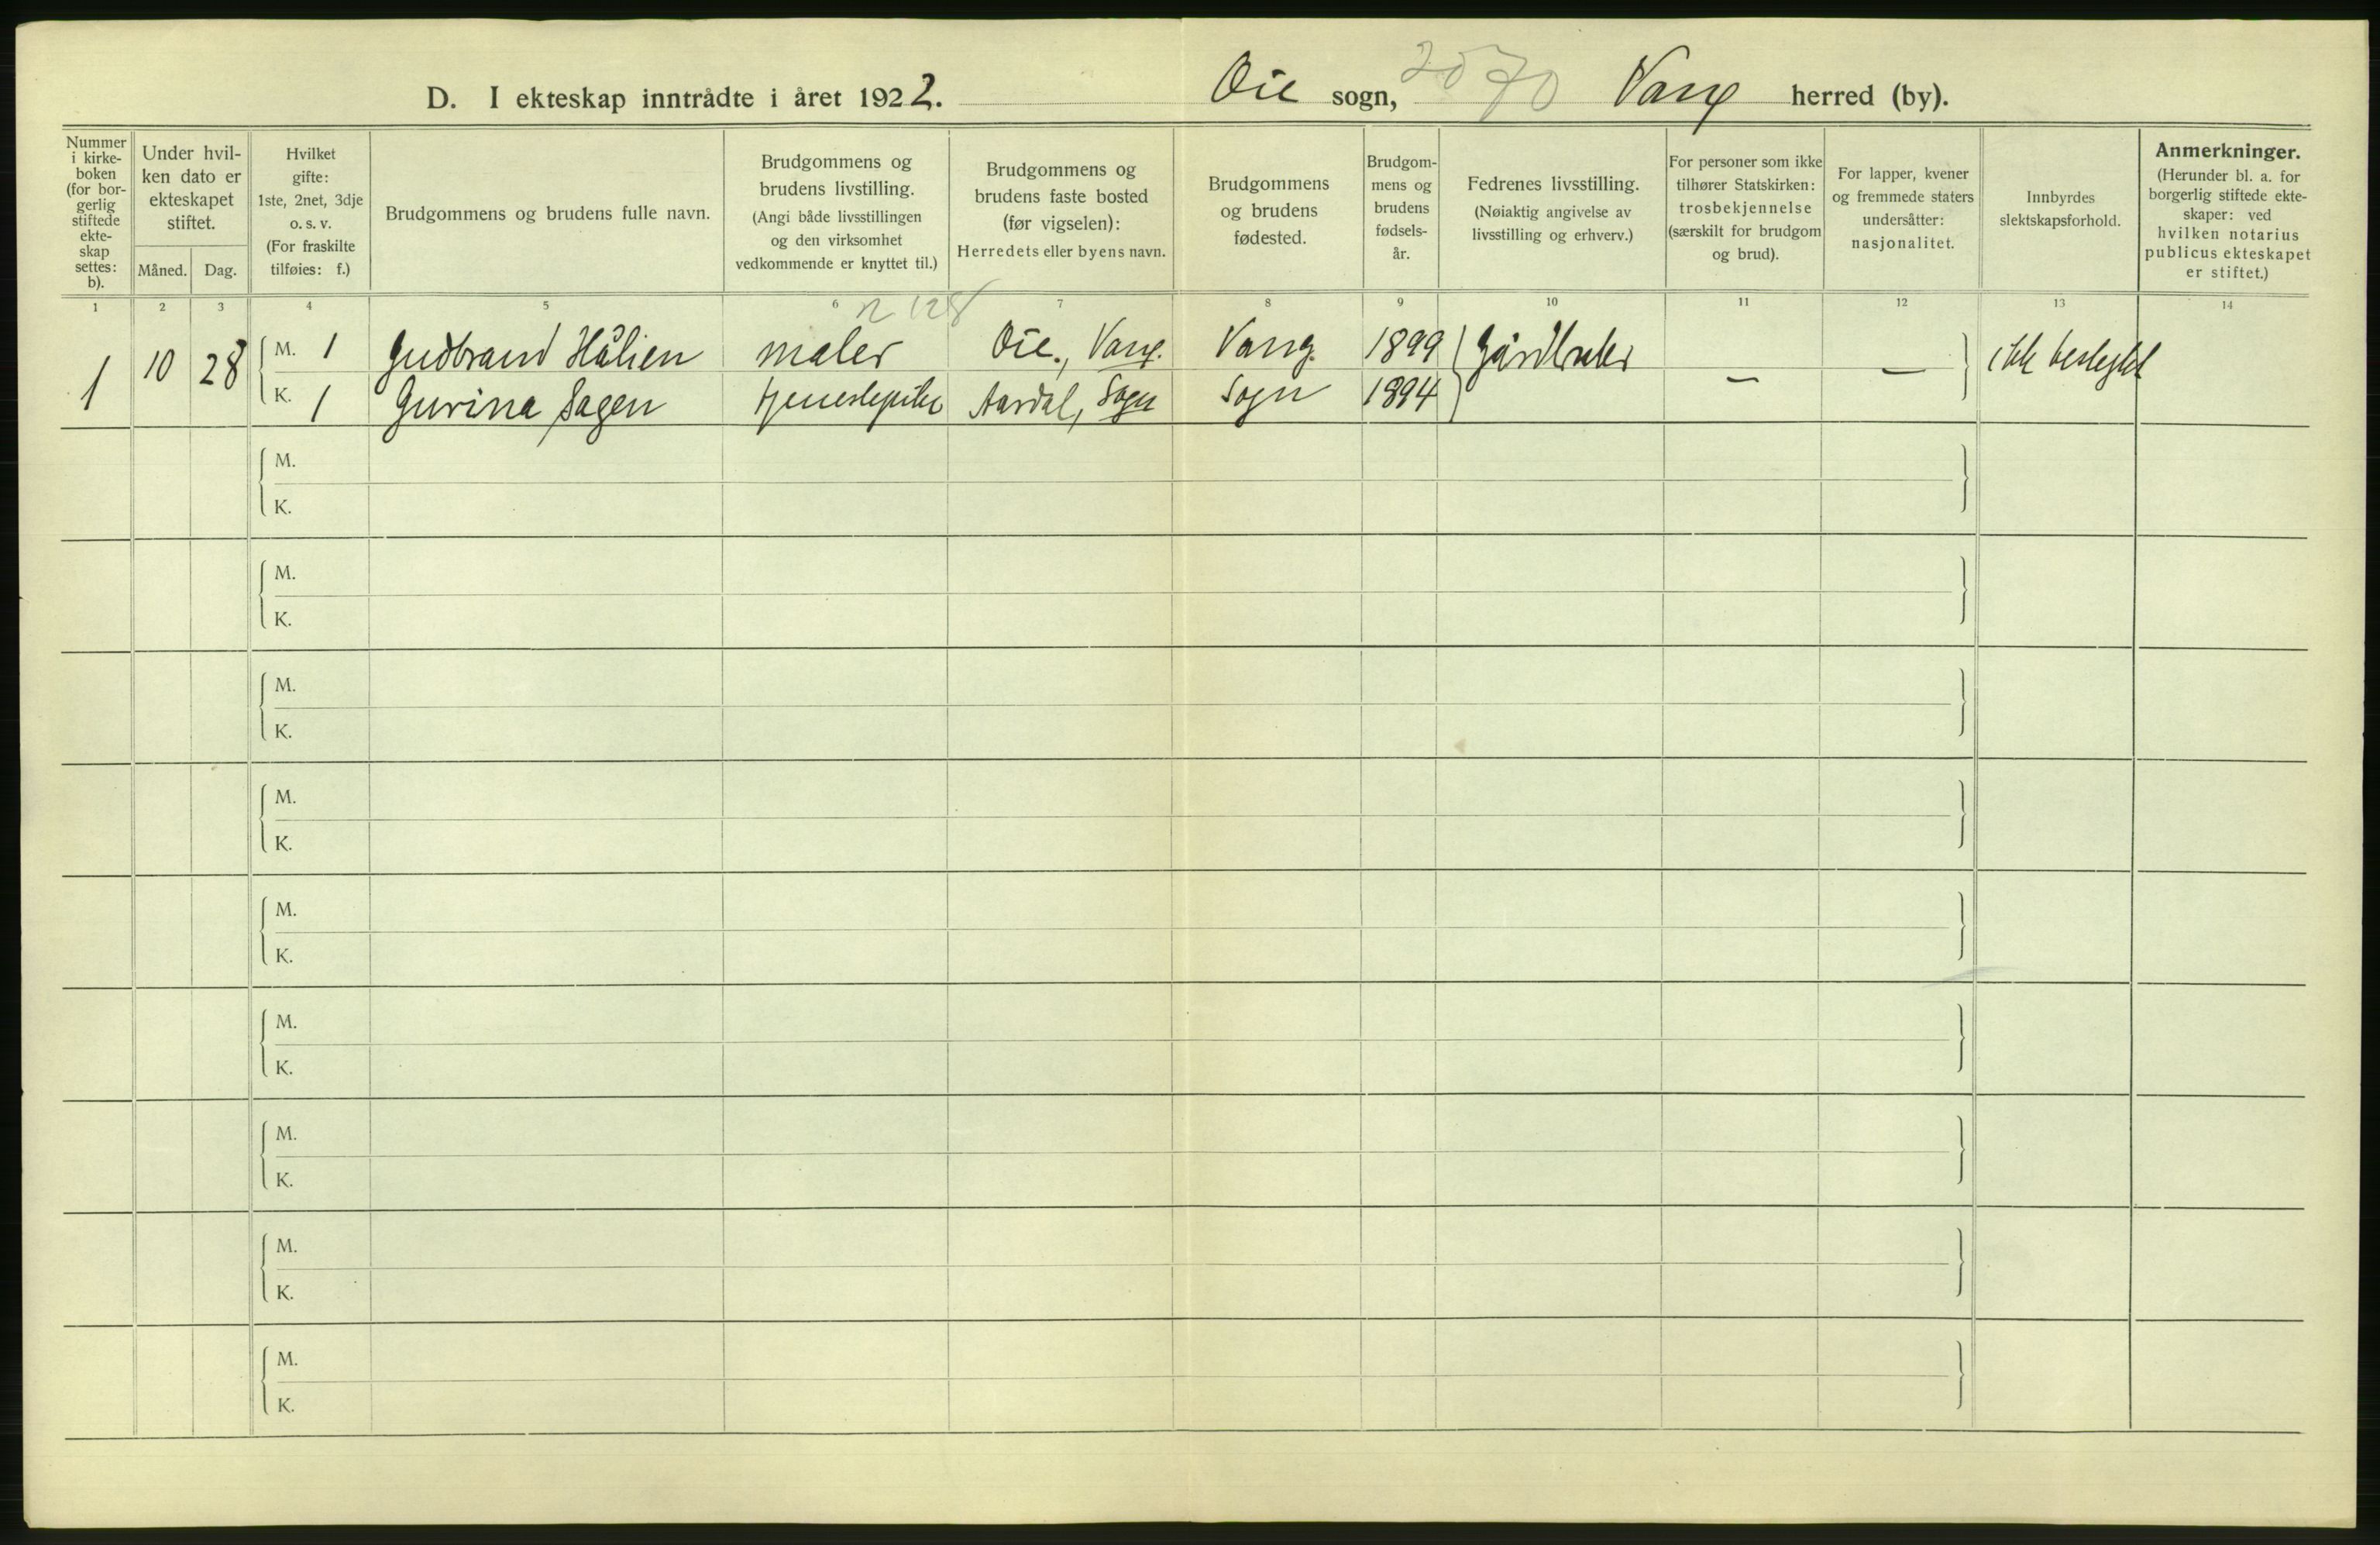 D. I ekteskap inntrådte i året 1922. Øie sogn, 2570 Vang herred (by).
Nummer i kirke-boken (for bor-gerlig stiftede ekte-skap settes: b).
Under hvil-ken dato er ekteskapet stiftet.
Måned. Dag.
Hvilket gifte: 1ste, 2net, 3dje o. s. v. (For fraskilte tilføies: f.)
Brudgommens og brudens fulle navn.
Brudgommens og brudens livstilling. (Angi både livsstillingen og den virksomhet vedkommende er knyttet til.)
Brudgommens og brudens faste bosted (før vigselen): Herredets eller byens navn.
Brudgommens og brudens fødested.
Brudgom-mens og brudens fødsels-år.
Fedrenes livsstilling. (Nøiaktig angivelse av livsstilling og erhverv.)
For personer som ikke tilhører Statskirken: trosbekjennelse (særskilt for brudgom og brud).
For lapper, kvener og fremmede staters undersåtter: nasjonalitet.
Innbyrdes slektskapsforhold.
Anmerkninger. (Herunder bl. a. for borgerlig stiftede ekte-skaper: ved hvilken notarius publicus ekteskapet er stiftet.)
1 2 3 4 5 6 7 8 9 10 11 12 13 14
1 10 28 M. 1 Gudbrand Hålien maler Øie., Vang. Vang. 1899 Gårdbruker — — ikke beslegtet
K. 1 Gurina Sagen tjenestepike Aardal, Sogn Sogn 1894
M.
K.
M.
K.
M.
K.
M.
K.
M.
K.
M.
K.
M.
K.
M.
K.
M.
K.